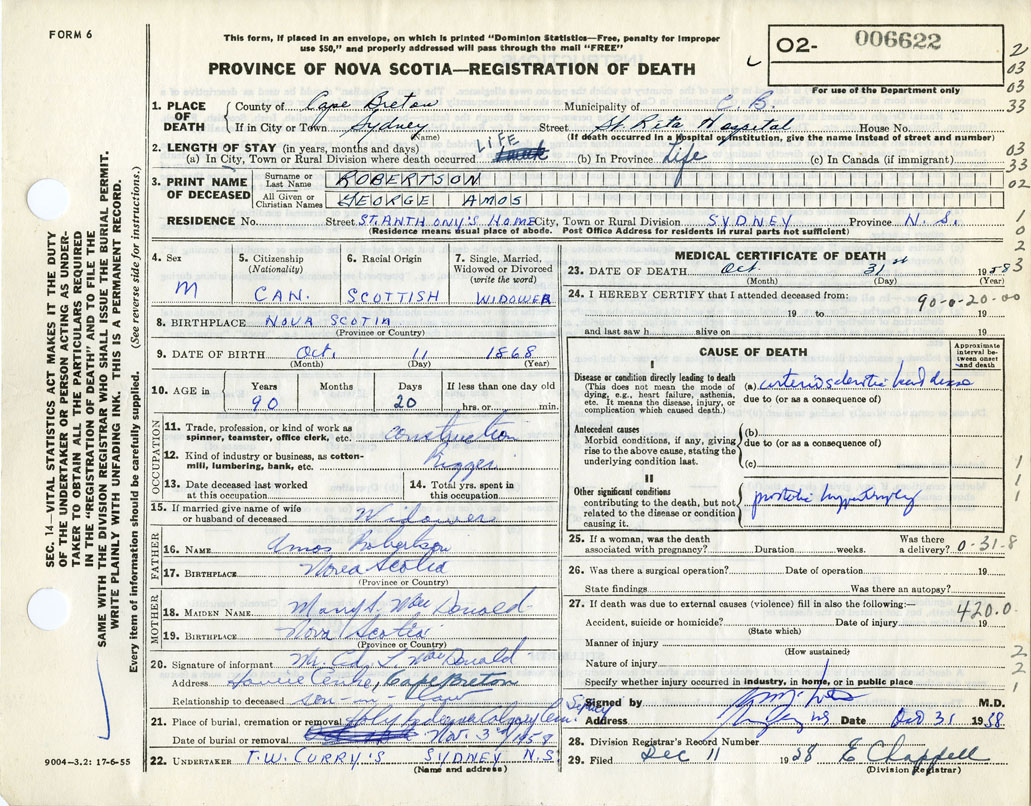 FORM 6
This form, if placed in an envelope, on which is printed "Dominion Statistics—Free, penalty for improper
use $50," and properly addressed will pass through the mail "FREE"
PROVINCE OF NOVA SCOTIA—REGISTRATION OF DEATH
02- 006622
For use of the Department only
1. PLACE OF DEATH
County of Cape Breton Municipality of C. B.
If in City or Town Sydney Street St Rita Hospital House No.
(Name) (If death occurred in a Hospital or Institution, give the name instead of street and number)
2. LENGTH OF STAY (in years, months and days)
(a) In City, Town or Rural Division where death occurred LIFE (b) In Province Life (c) In Canada (if immigrant)
3. PRINT NAME OF DECEASED
Surname or Last Name ROBERTSON
All Given or Christian Names GEORGE AMOS
RESIDENCE No. Street ST. ANTHONY'S HOME City, Town or Rural Division SYDNEY Province N. S.
(Residence means usual place of abode. Post Office Address for residents in rural parts not sufficient)
4. Sex M
5. Citizenship (Nationality) CAN.
6. Racial Origin SCOTTISH
7. Single, Married, Widowed or Divorced (write the word) WIDOWER
8. BIRTHPLACE NOVA SCOTIA
(Province or Country)
9. DATE OF BIRTH Oct. 11 1868
(Month) (Day) (Year)
10. AGE in Years 90 Months Days 20 If less than one day old hrs. or min.
OCCUPATION
11. Trade, profession, or kind of work as spinner, teamster, office clerk, etc. Construction
12. Kind of industry or business, as cotton-mill, lumbering, bank, etc. Rigger
13. Date deceased last worked at this occupation
14. Total yrs. spent in this occupation
15. If married give name of wife or husband of deceased Widower
FATHER
16. NAME Amos Robertson
17. BIRTHPLACE Nova Scotia
(Province or Country)
MOTHER
18. MAIDEN NAME Mary S. MacDonald
19. BIRTHPLACE Nova Scotia
(Province or Country)
20. Signature of informant Mr. Ed. L. MacDonald
Address Howie Centre, Cape Breton
Relationship to deceased son-in law
21. Place of burial, cremation or removal Holy Calgary Cem. Sydney
Date of burial or removal Nov. 3rd 1958
22. UNDERTAKER T.W. CURRY'S SYDNEY N.S.
(Name and address)
MEDICAL CERTIFICATE OF DEATH
23. DATE OF DEATH Oct. 31st 1958
(Month) (Day) (Year)
24. I HEREBY CERTIFY that I attended deceased from:
90-0-20-00
19 to 19
and last saw h alive on 19
CAUSE OF DEATH
Approximate interval between onset and death
I
Disease or condition directly leading to death
(This does not mean the mode of dying, e.g., heart failure, asthenia, etc. It means the disease, injury, or complication which caused death.)
(a) arteriosclerotic heart disease
due to (or as a consequence of)
Antecedent causes
Morbid conditions, if any, giving rise to the above cause, stating the underlying condition last.
(b)
due to (or as a consequence of)
(c)
II
Other significant conditions
contributing to the death, but not related to the disease or condition causing it.
prostatic hypertrophy
25. If a woman, was the death associated with pregnancy? Duration weeks. Was there a delivery?
0-31-8
26. Was there a surgical operation? Date of operation 19
State findings Was there an autopsy?
27. If death was due to external causes (violence) fill in also the following:—
420.0
Accident, suicide or homicide? Date of injury 19
(State which)
Manner of injury
(How sustained)
Nature of injury
Specify whether injury occurred in industry, in home, or in public place
Signed by M.D.
Address Date Oct 31 1958
28. Division Registrar's Record Number
29. Filed Dec 11 1958 E Chappell
(Division Registrar)
SEC. 14—VITAL STATISTICS ACT MAKES IT THE DUTY
OF THE UNDERTAKER OR PERSON ACTING AS UNDER-
TAKER TO OBTAIN ALL THE PARTICULARS REQUIRED
IN THE "REGISTRATION OF DEATH" AND TO FILE THE
SAME WITH THE DIVISION REGISTRAR WHO SHALL ISSUE THE BURIAL PERMIT.
WRITE PLAINLY WITH UNFADING INK. THIS IS A PERMANENT RECORD.
Every item of information should be carefully supplied. (See reverse side for instructions.)
9004—3.2: 17-6-55
2
03
03
33
03
33
02
1
0
2
3
1
1
1
2
2
1